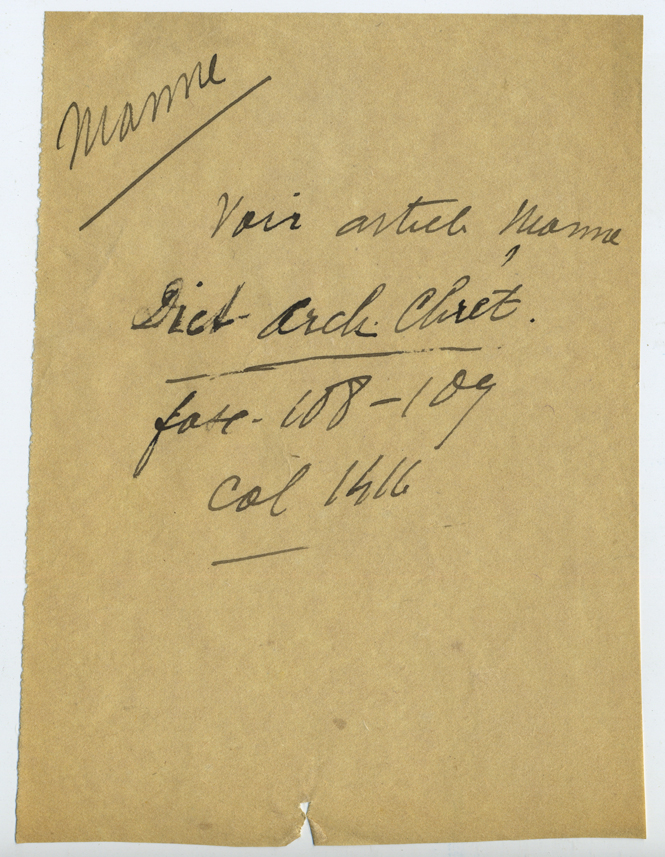 Manne
Voir article Manne
Dict. Arch. Chrét.
fasc. 108-109
col 1416